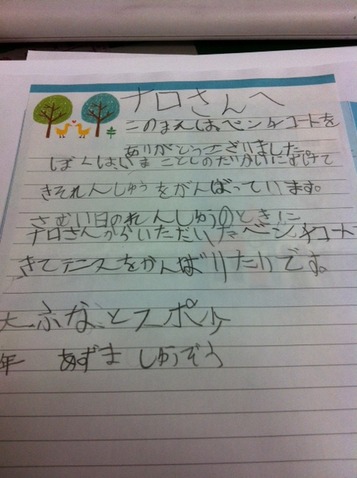 ナロさんへ
このまえはベンチコートを
ありがとうございました。
ぼくは、いまことしのたいかいにむけて
きそれんしゅうをがんばっています。
さむい日のれんしゅうのときに
ナロさんからいただいたベンチコート
きてテニスをがんばりたいです。
大ふなとスポ少
年 あずましゅうぞう